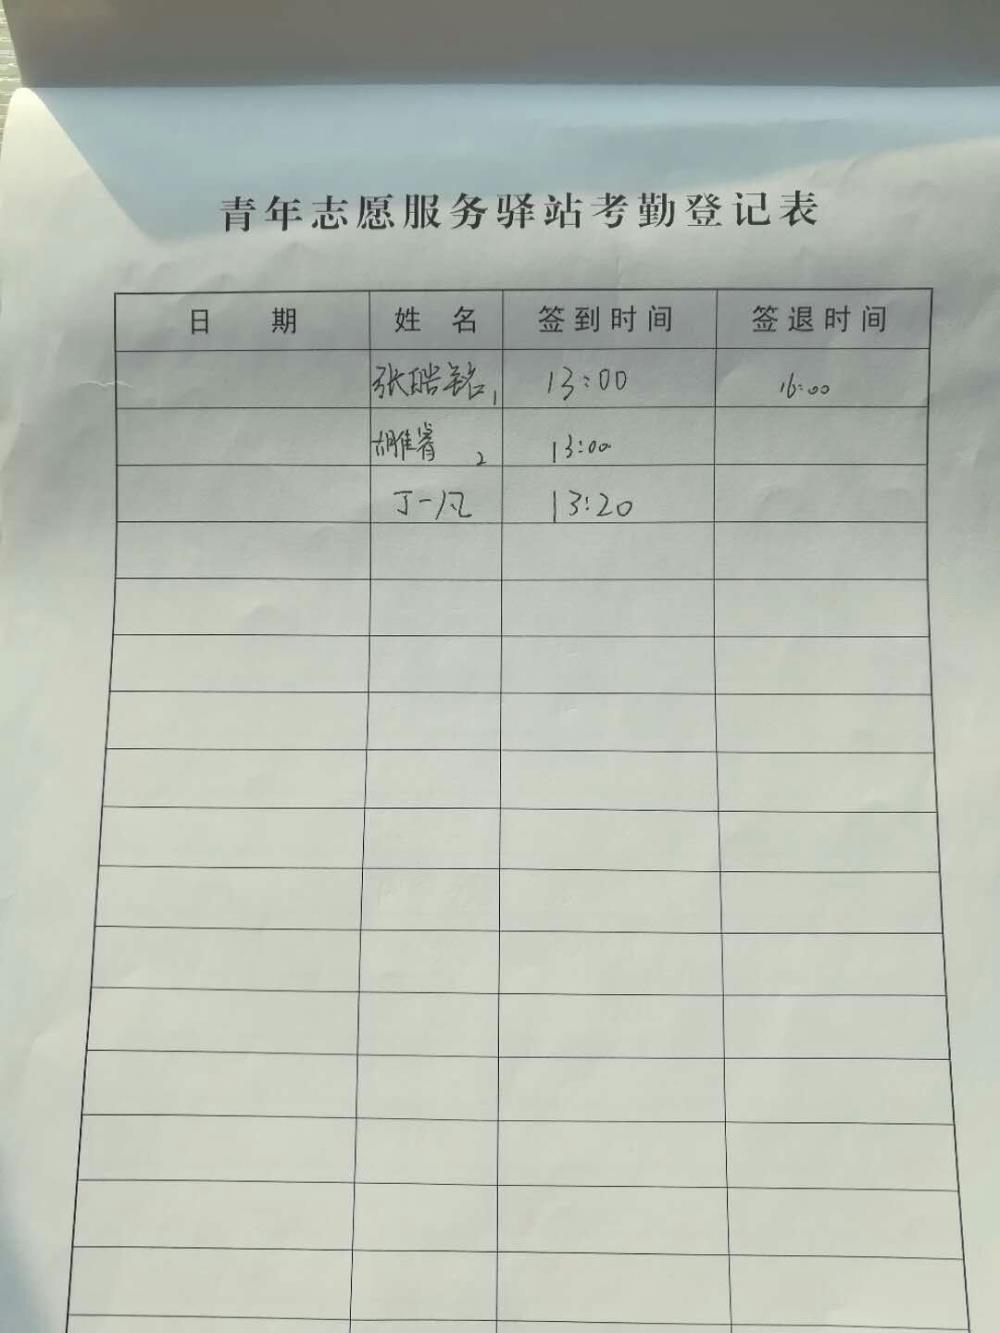 青年志愿服务驿站考勤登记表
日 期 姓 名 签到时间 签退时间
张皓铭1 13:00 16:00
胡雅睿 2 13:00
丁一凡 13:20